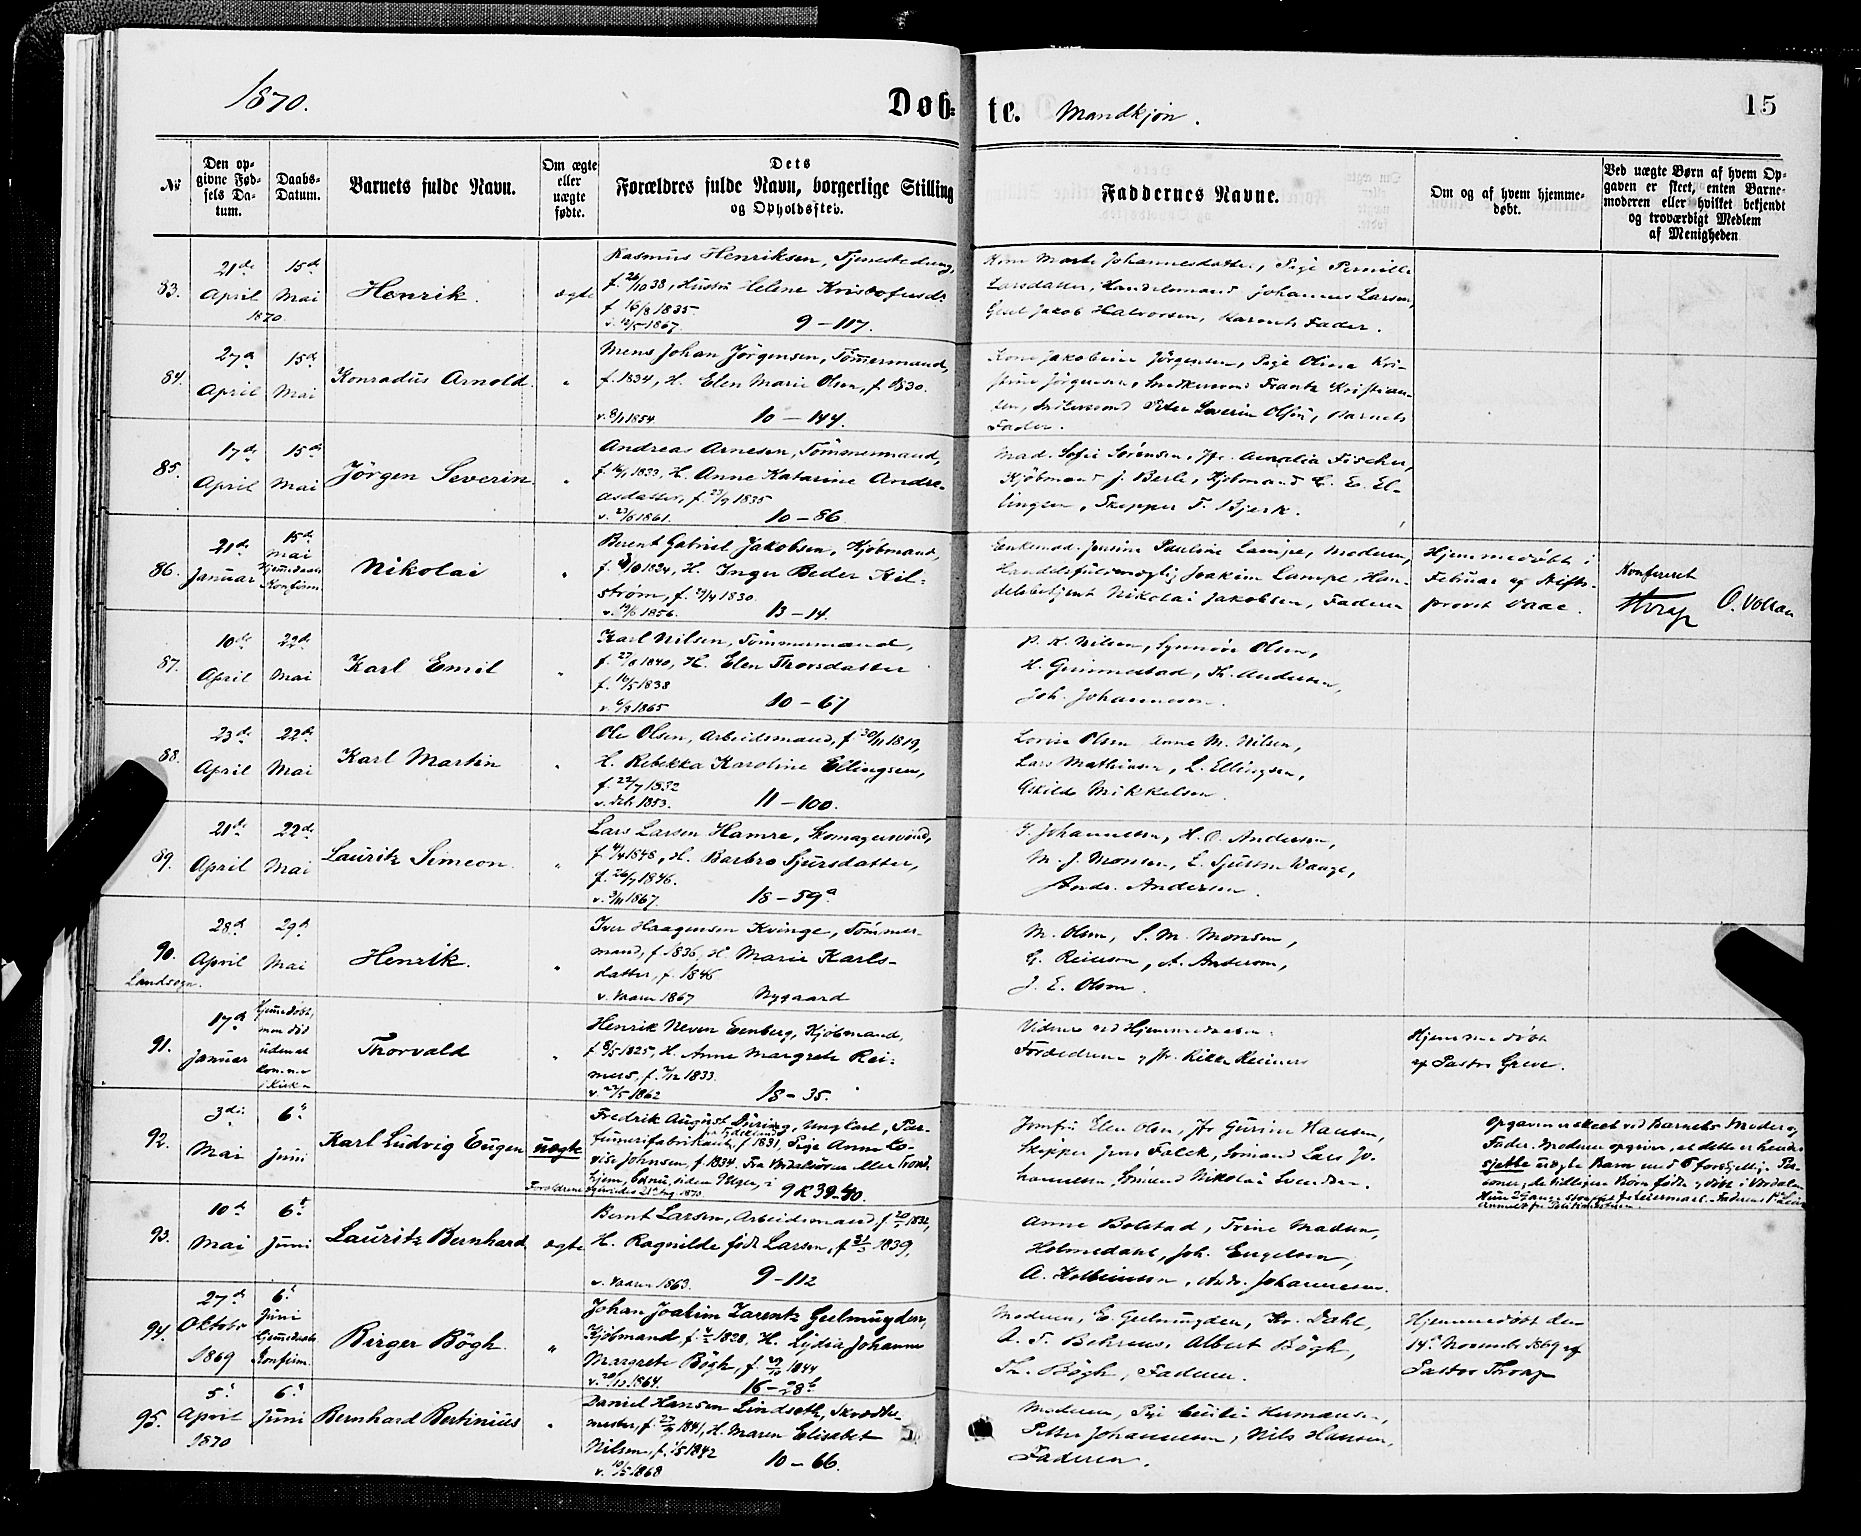 1870.
Døbte. Mandkjøn.
15
№
Den opgivne Fødsels Datum.
Daabs-Datum.
Barnets fulde Navn.
Om ægte eller uægte fødte.
Dets Forældres fulde Navn, borgerlige Stilling og Opholdssted.
Faddernes Navne.
Om og af hvem hjemmedøbt.
Ved uægte Børn af hvem Opgaven er skeet, enten Barnemoderen eller hvilket bekjendt og troværdigt Medlem af Menigheden
83.
21de April 1870
15de Mai
Henrik.
ægte
Rasmus Henriksen, Tjenestedreng,
f. 26/10 38, Hustru Helene Kristofersd.
f. 16/8 1835.
v. 12/5 1867. 9-117.
Kone Marte Johannesdatter, Pige Pernille
Larsdatter, Handelsmand Johannes Larsen,
Gesel Jakob Halvorsen, Barnets Fader.
84.
27de April
15de Mai
Konradus Arnold.
"
Mons Johan Jørgensen, Tømmermand,
f. 1834, H. Elen Marie Olsen, f. 1830.
v. 8/1 1854. 10-144.
Kone Jakobine Jørgensen, Pige Oline Kri-
stine Jørgensen, Snedkersvend Frantz Kristian-
sen, Peter Severin Olsen, Barnets
Fader.
85.
17de April
15de Mai
Jörgen Severin
"
Andreas Arnesen, Tömmermand,
1833, H. Anne Katarine Andre-
asdatter, f. 23/9 1835
v. 23/6 1861. 10-86.
Mad. Sofie Sørensen, Jfr. Amalia Fischer,
Kjöbmand J. Berle, Kjöbmand E. E. El-
lingsen, Skipper T. Bjerk.
86.
21de Januar
15de Mai Hjemmedaab Konfirm.
Nikolai
"
Berent Gabriel Jakobsen, Kjöbmand,
1824, H. Inger Beder Kil-
ström, f. 1830.
v. 19/6 1856. 13-14.
Enkemad. Pauline Lampe, Moderen,
Handelsfuldmægtig Joakim Lampe, Han-
delsbetjent Nikolai Jakobsen, Faderen
Hjemmedøbt i
Februar af Stifts-
provst
Konfereret
O. Vollan
87.
10de April
22de Mai
Karl Emil
"
Karl Nilsen, Tömmermand,
f. 27/8 1840, H. Elen Thorsdatter
f. 16/5 1838
v. 6/8 1865 10-67
P. K. Nilsen, Synnöve Olsen,
H. Grimmestad, K. Andersen,
Joh. Johannesen.
88.
23de April
22de Mai
Karl Martin
"
Ole Olsen, Arbeidsmand, f. 30/11 1819,
H. Rebekka Karoline Ellingsen,
f. 22/7 1832
v. 1853. 11-100.
Lovise Olsen Anne M. Nilsen,
Lars Mathiesen, L. Ellingsen,
Mikkelsen.
89.
21de April
22de Mai
Lauritz Simeon.
"
Lars Larsen Hamre, Skomagersvend,
f. 4/4 1848, H. Barbro Sjursdatter,
f. 26/7 1846.
v. 3/11 1867. 18-59a
T. Johannesen, H. O. Andersen,
M. J. Monsen, L. Sjursen Waage,
Andr. Andersen.
90. Landsogn.
28de April
29de Mai
Henrik.
"
Iver Haagensen Kvinge, Tömmer-
mand, f. 1836, H. Marie Karls-
datter, f. 1846
v. Vaaren 1867 Nygaard
M. Olsen, S. M. Monsen,
G. Reierson, A. Anderson,
J. E. Olson.
91.
17de Januar
hjemmedöbt, men död uden at komme i Kirke
Thorvald
"
Henrik Neven Eenberg, Kjöbmand,
f. 8/5 1825, H. Anne Margrete Rei-
mers, f. 1833.
v. 27/5 1862 18-35.
Vidner ved Hjemmedaaben:
Forældrene og Jfr. Rikke Reimers
Hjemmedöbt
af Pastor Greve.
92.
3die Mai
6te Juni
Karl Ludvig Eugen
uægte
Fredrik August Düring, Ungkarl, Par-
fümerifabrikant, f. 1831, Pige Anne Lo-
vise Johnsen, f. 1834.
Forældrene 9 K 39-40.
Jomfru Elen Olsen, Jfr Gurine Hansen,
Skipper Jens Falck, Sömand Lars Jo-
hannesen, Sömand Nikolai Svendsen.
Opgaven er skeet ved Barnets Moder og
Fader. Moderen opgiver, at dette er hendes
sjette uægte Barn med
93.
10de Mai
6te Juni
Lauritz Bernhard
ægte
Bernt Larsen, Arbeidsmand, f. 1832,
H. Ragnilde född Larsen, f. 1839,
v. Vaaren 1863. 9-112
Anne Bolstad, Trine Madsen,
Holmedahl, Joh. Engelsen,
A. Kolbeinsen, Andr. Johannesen.
94.
27de Oktober 1869
6te Juni Hjemmedaab Konfirm.
Birger Bögh.
"
Johan Joakim Lorentz Geelmuyden,
Kjöbmand, f. 1828, H. Lydia Johanne
Margrete Bögh, f. 1844
v. 1864. 16-28b
Moderen, E. Geelmuyden, Kr. Dahl,
A. T. Behrens, Albert Bögh,
Th. Bögh, Faderen.
Hjemmedöbt den
14de November 1869 af
Pastor Thorp
95.
5te April 1870
6te Juni
Bernhard Bertinius
"
Daniel Hansen Lindseth, Skrædder-
mester, f. 1841, H. Maren Elisabet
Nilsen, f. 1842
v. 10/5 1868 10-66.
Moderen, Pige Cecilie Hermansen,
Petter Johannesen, Nils Hansen,
Faderen.